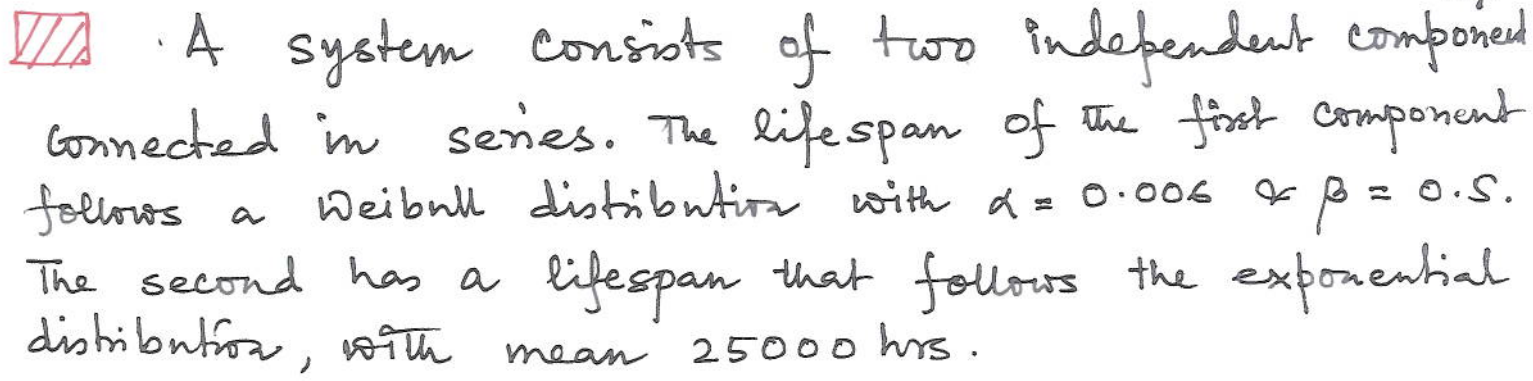 . A system consists of two independent component
connected in series. The lifespan of the first component
follows a Weibull distribution with α = 0.006 & β = 0.5.
The second has a lifespan that follows the exponential
distribution, with mean 25000 hrs.